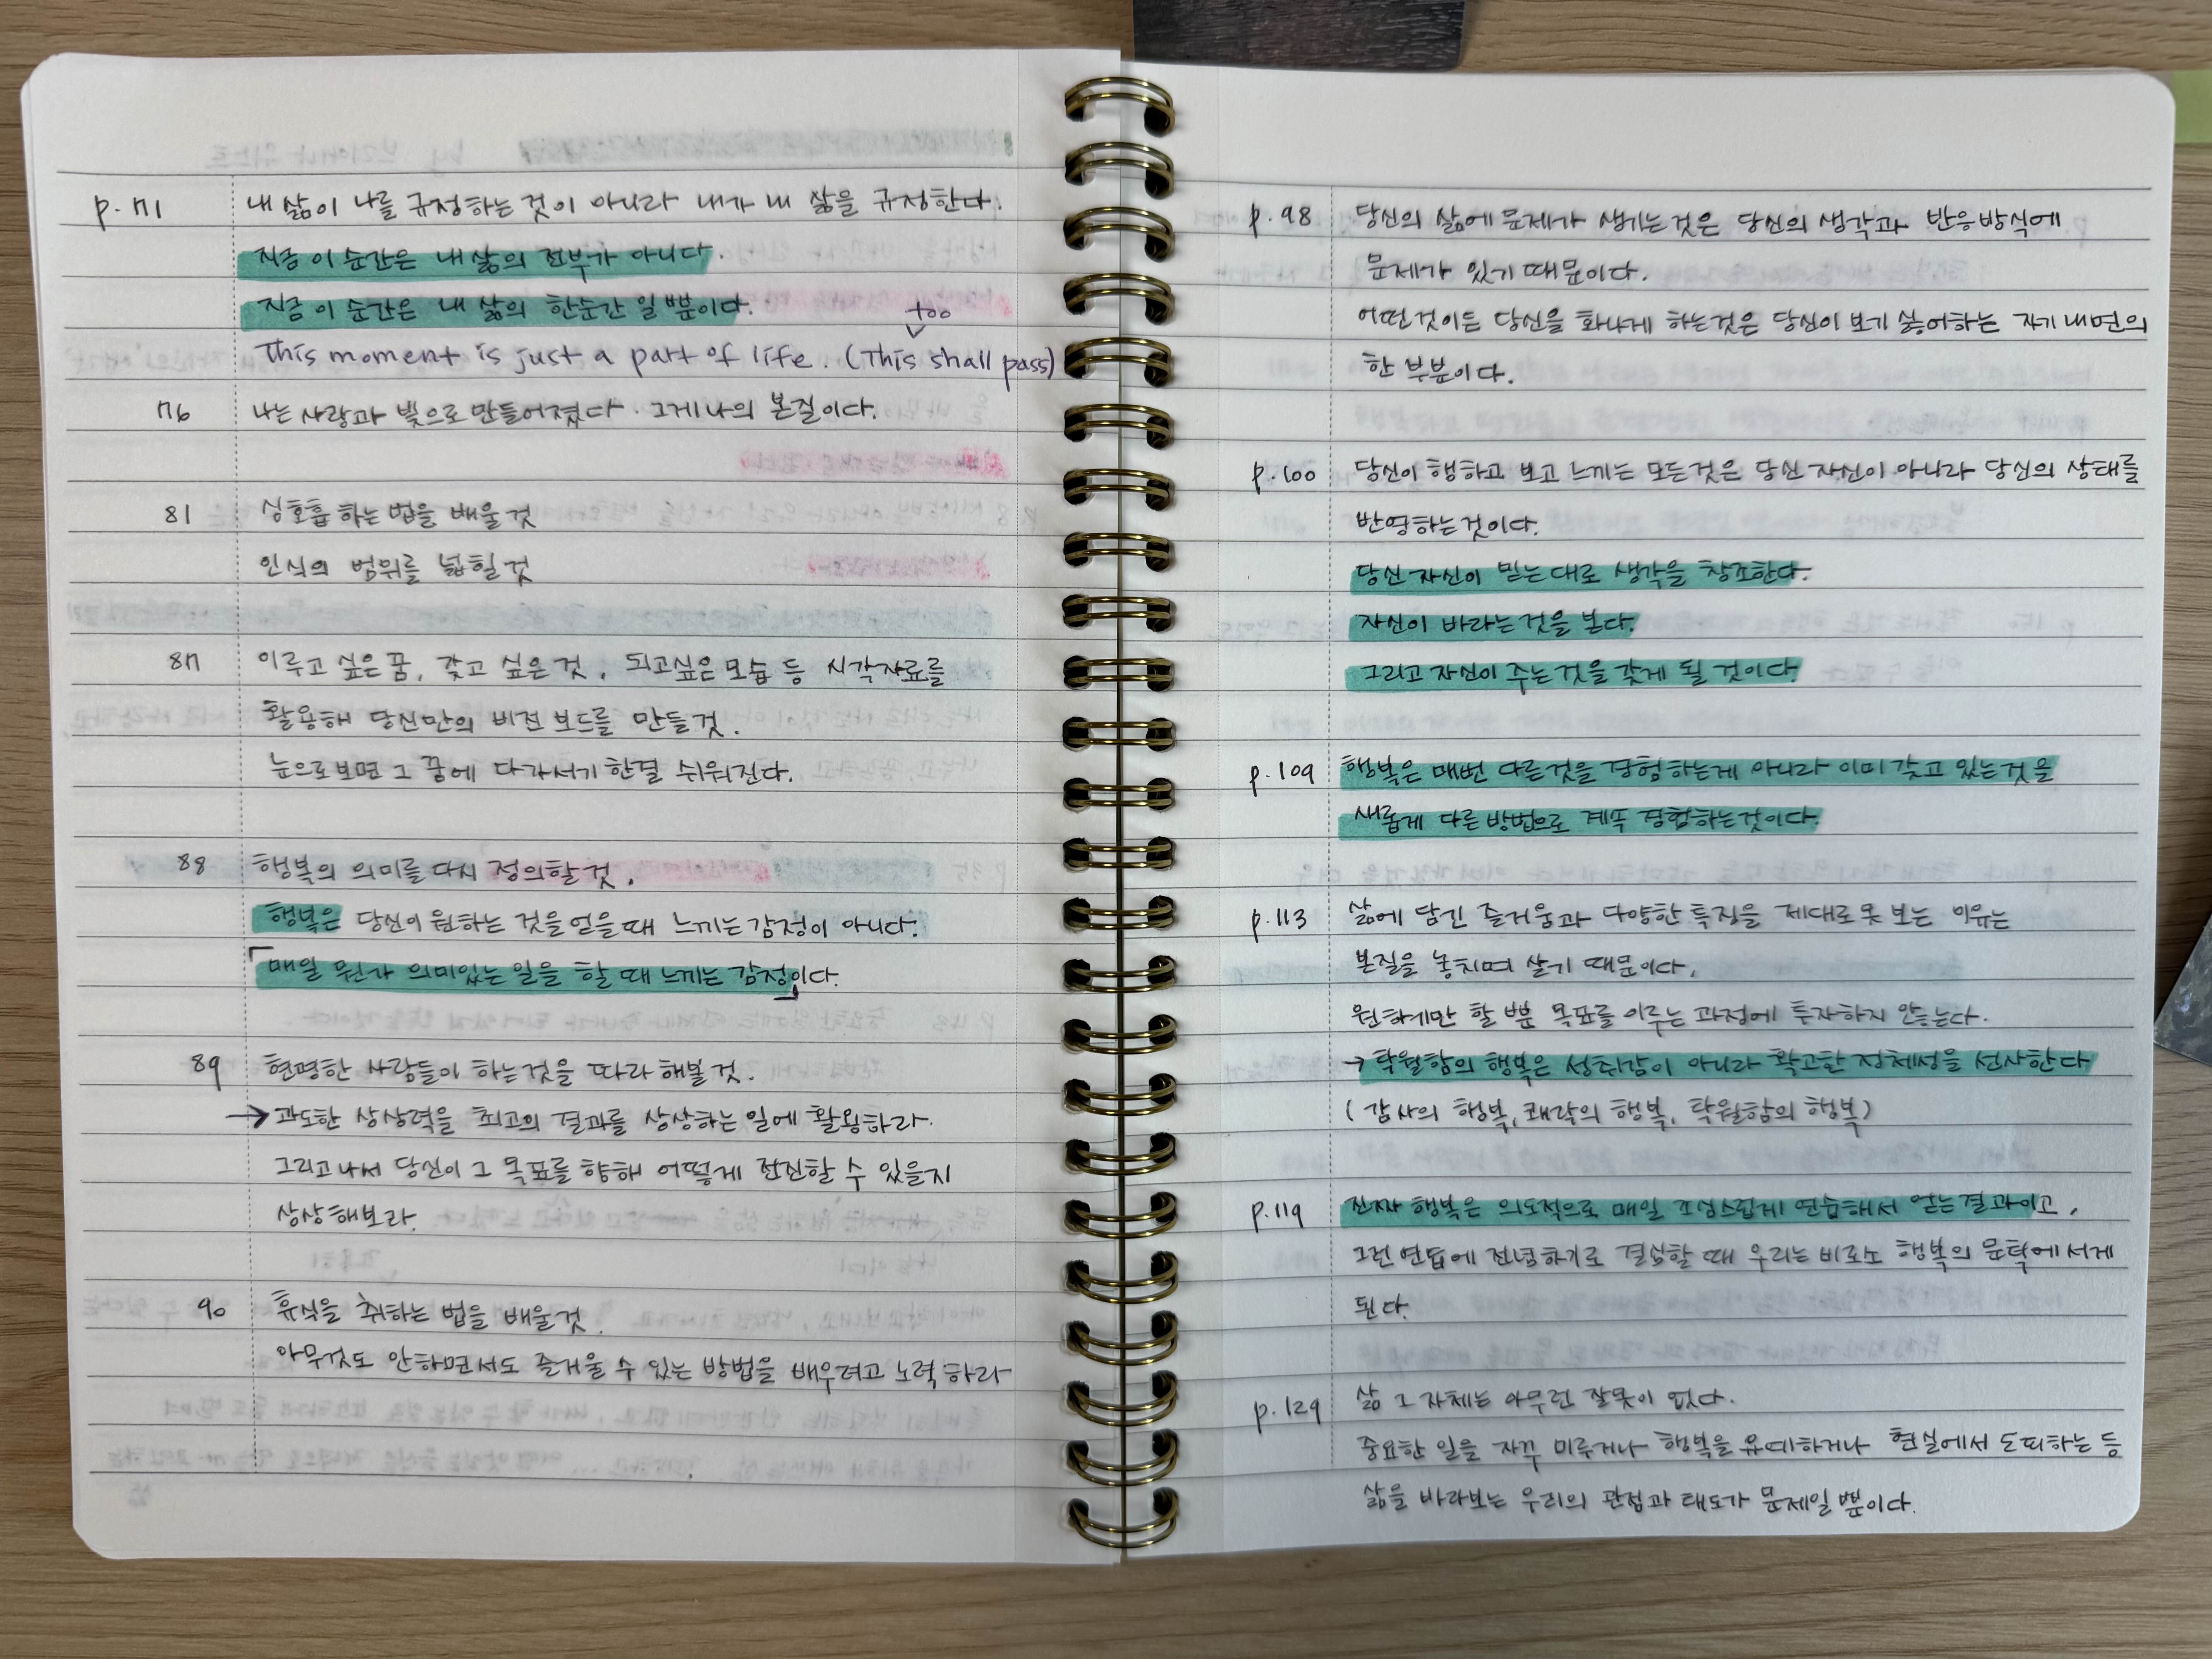 p. 71 내 삶이 나를 규정하는 것이 아니라 내가 내 삶을 규정한다.
지금 이 순간은 내 삶의 전부가 아니다.
지금 이 순간은 내 삶의 한순간 일 뿐이다.
too
This moment is just a part of life. (This shall pass)
76 나는 사랑과 빛으로 만들어졌다. 그게 나의 본질이다.
81 심호흡 하는 법을 배울 것
인식의 범위를 넓힐 것
87 이루고 싶은 꿈, 갖고 싶은 것, 되고싶은 모습 등 시각자료를
활용해 당신만의 비전 보드를 만들 것.
눈으로 보면 그 꿈에 다가서기 한결 쉬워진다.
88 행복의 의미를 다시 정의할 것.
행복은 당신이 원하는 것을 얻을 때 느끼는 감정이 아니다.
「매일 뭔가 의미있는 일을 할 때 느끼는 감정」이다.
89 현명한 사람들이 하는 것을 따라 해볼 것.
→ 과도한 상상력을 최고의 결과를 상상하는 일에 활용하라.
그리고 나서 당신이 그 목표를 향해 어떻게 전진할 수 있을지
상상해보라.
90 휴식을 취하는 법을 배울 것.
아무것도 안하면서도 즐거울 수 있는 방법을 배우려고 노력하라
p. 98 당신의 삶에 문제가 생기는 것은 당신의 생각과 반응방식에
문제가 있기 때문이다.
어떤 것이든 당신을 화나게 하는것은 당신이 보기 싫어하는 자기 내면의
한 부분이다.
p. 100 당신이 행하고 보고 느끼는 모든것은 당신 자신이 아니라 당신의 상태를
반영하는 것이다.
당신 자신이 믿는 대로 생각을 창조한다.
자신이 바라는 것을 본다.
그리고 자신이 주는 것을 갖게 될 것이다.
p. 109 행복은 매번 다른것을 경험하는게 아니라 이미 갖고 있는 것을
새롭게 다른 방법으로 계속 경험하는것이다.
p. 113 삶에 담긴 즐거움과 다양한 특징을 제대로 못 보는 이유는
본질을 놓치며 살기 때문이다.
원하기만 할 뿐 목표를 이루는 과정에 투자하지 않는다.
→ 탁월함의 행복은 성취감이 아니라 확고한 정체성을 선사한다
(감사의 행복, 쾌락의 행복, 탁월함의 행복)
p. 119 진짜 행복은 의도적으로 매일 조심스럽게 연습해서 얻는 결과이고,
그런 연습에 전념하기로 결심할 때 우리는 비로소 행복의 문턱에 서게
된다.
p. 129 삶 그 자체는 아무런 잘못이 없다.
중요한 일을 자꾸 미루거나 행복을 유예하거나 현실에서 도피하는 등
삶을 바라보는 우리의 관점과 태도가 문제일 뿐이다.